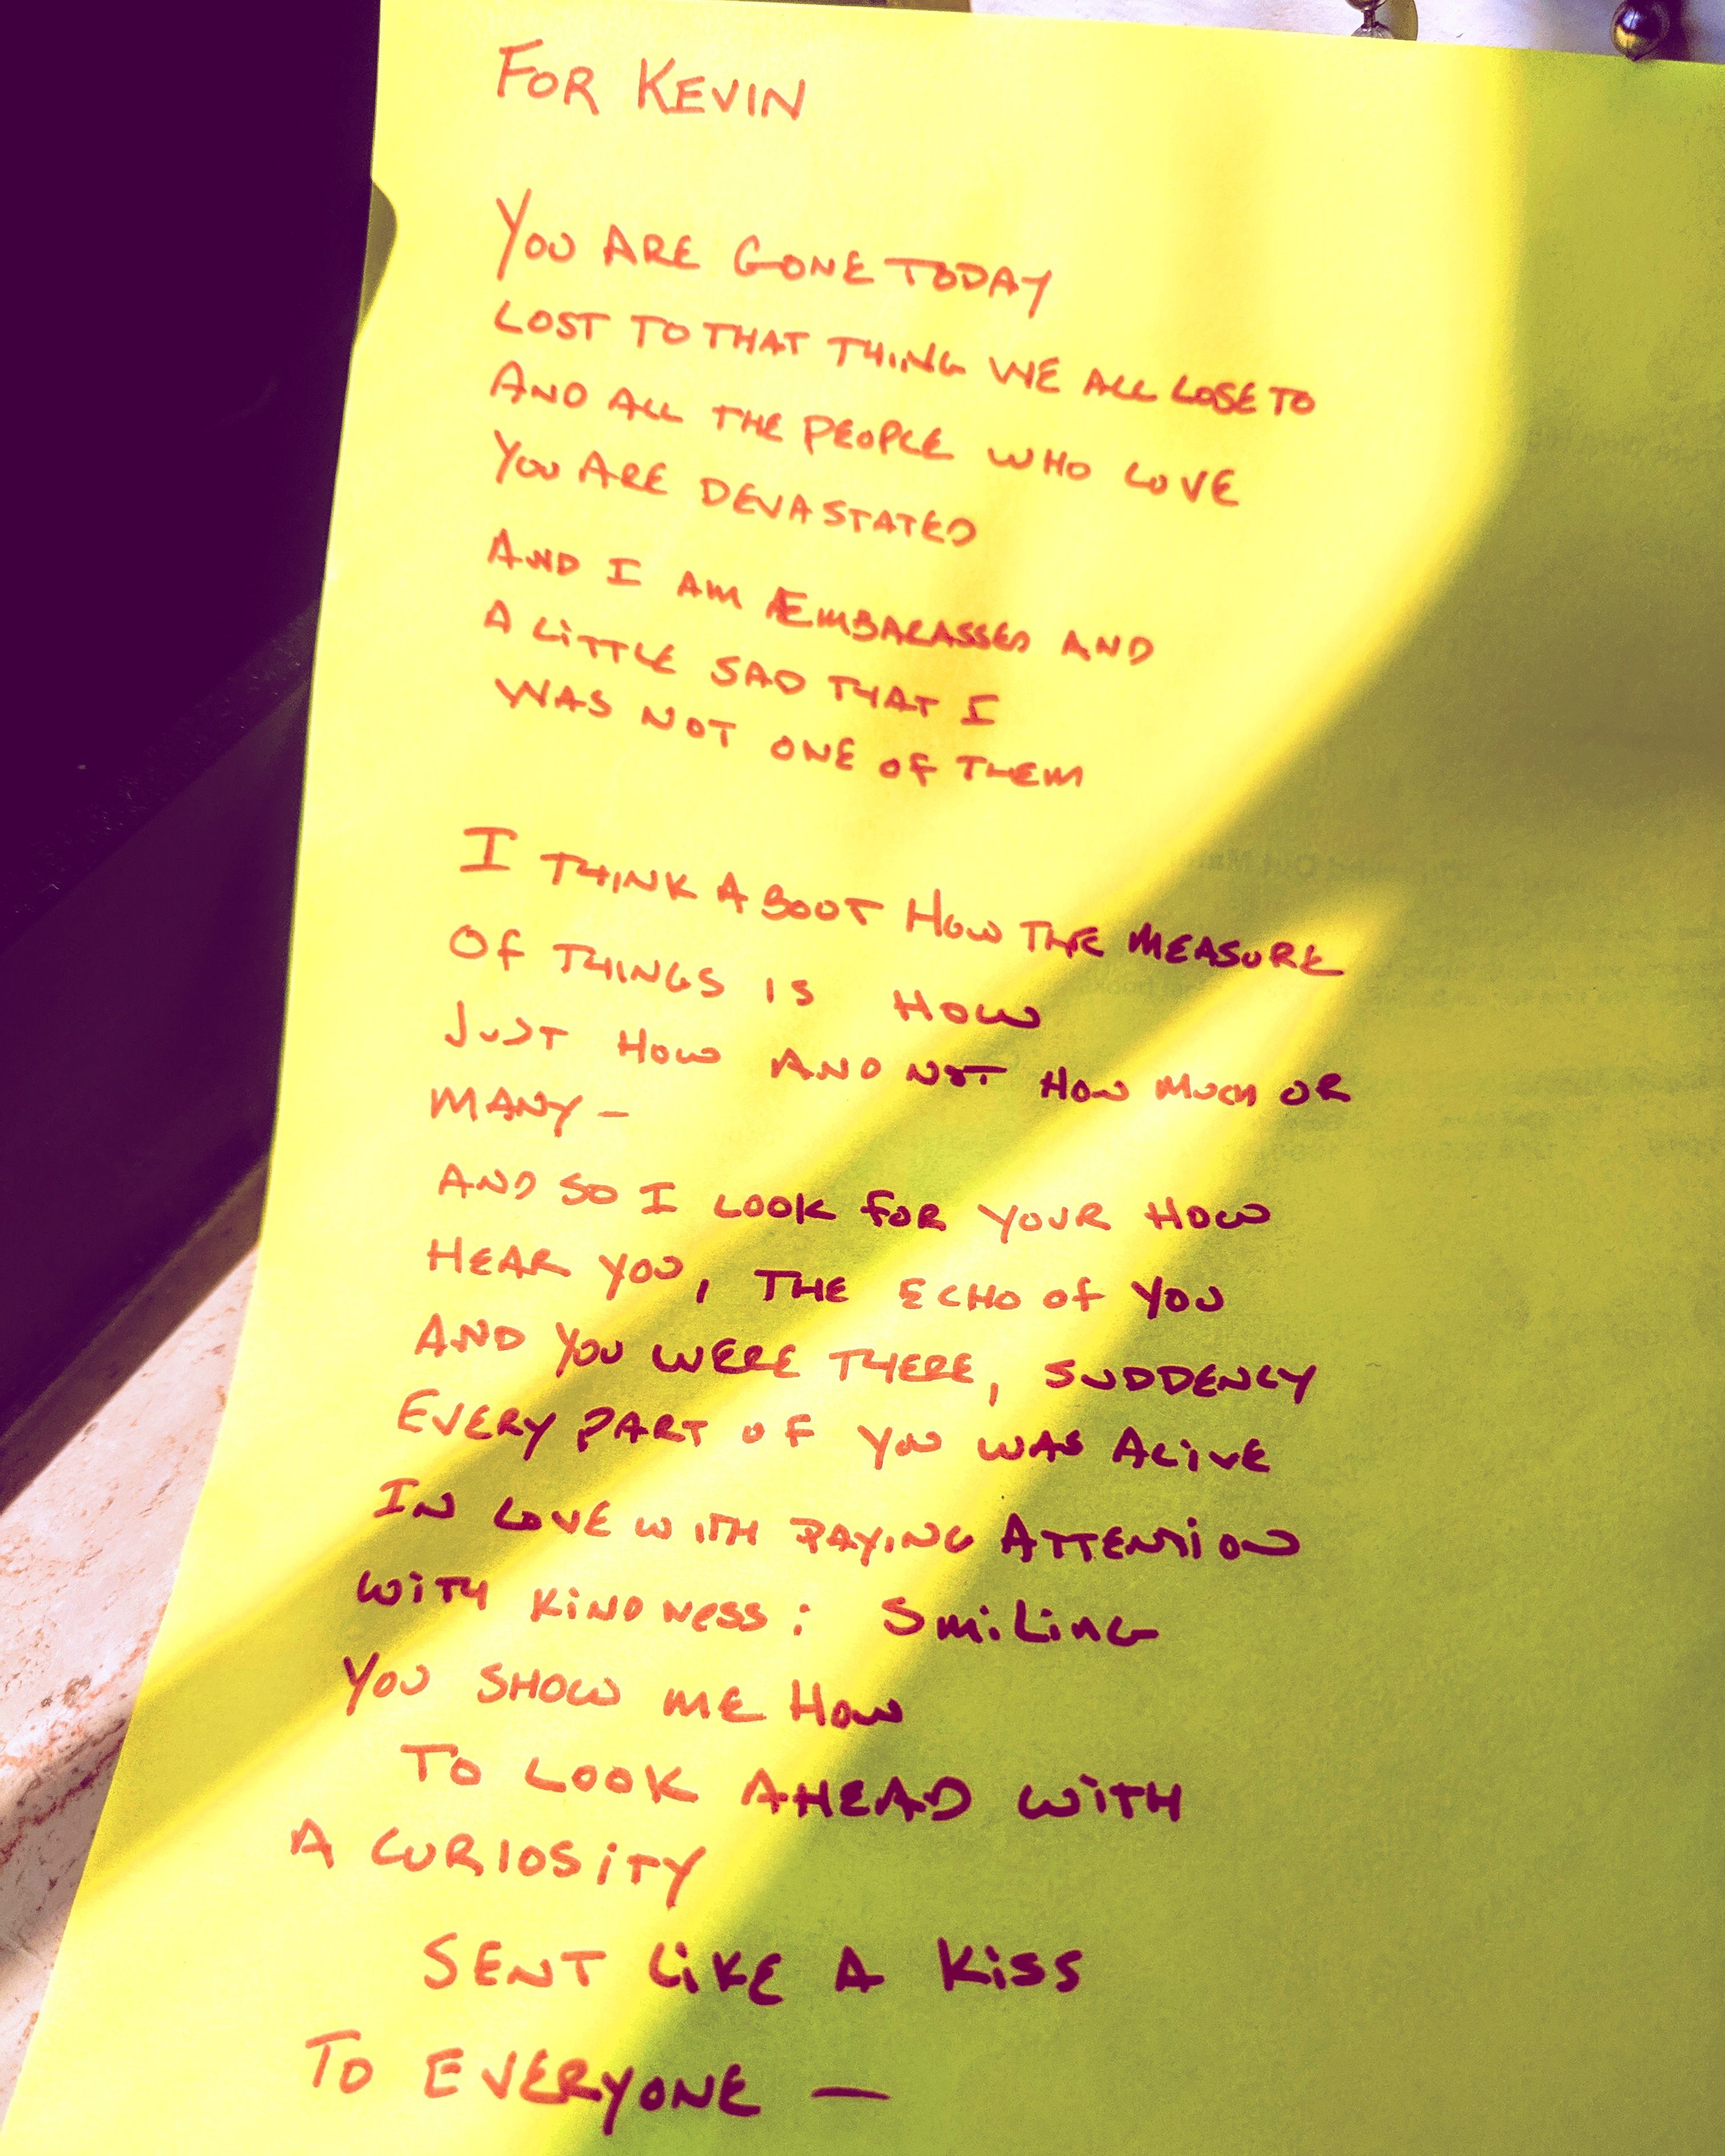 FOR KEVIN
YOU ARE GONE TODAY
LOST TO THAT THING WE ALL LOSE TO
AND ALL THE PEOPLE WHO LOVE
YOU ARE DEVASTATED
AND I AM EMBARASSED AND
A LiTTLE SAD THAT I
WAS NOT ONE OF THEM
I THINK ABOUT HOW THE MEASURE
OF THINGS IS HOW
JUST HOW AND NOT HOW MUCH OR
MANY –
AND SO I LOOK FOR YOUR HOW
HEAR YOU, THE ECHO Of YOU
AND YOU WERE THERE, SUDDENLY
EVERY PART OF YOU WAS ALiVE
IN LOVE WITH PAYING ATTENTiON
WiTH KiNDNeSS: SmiLiNG
YOU SHOW ME HOW
TO LOOK AHEAD WiTH
A CURIOSiTY
SENT LiKE A KiSS
TO EVERYONE —